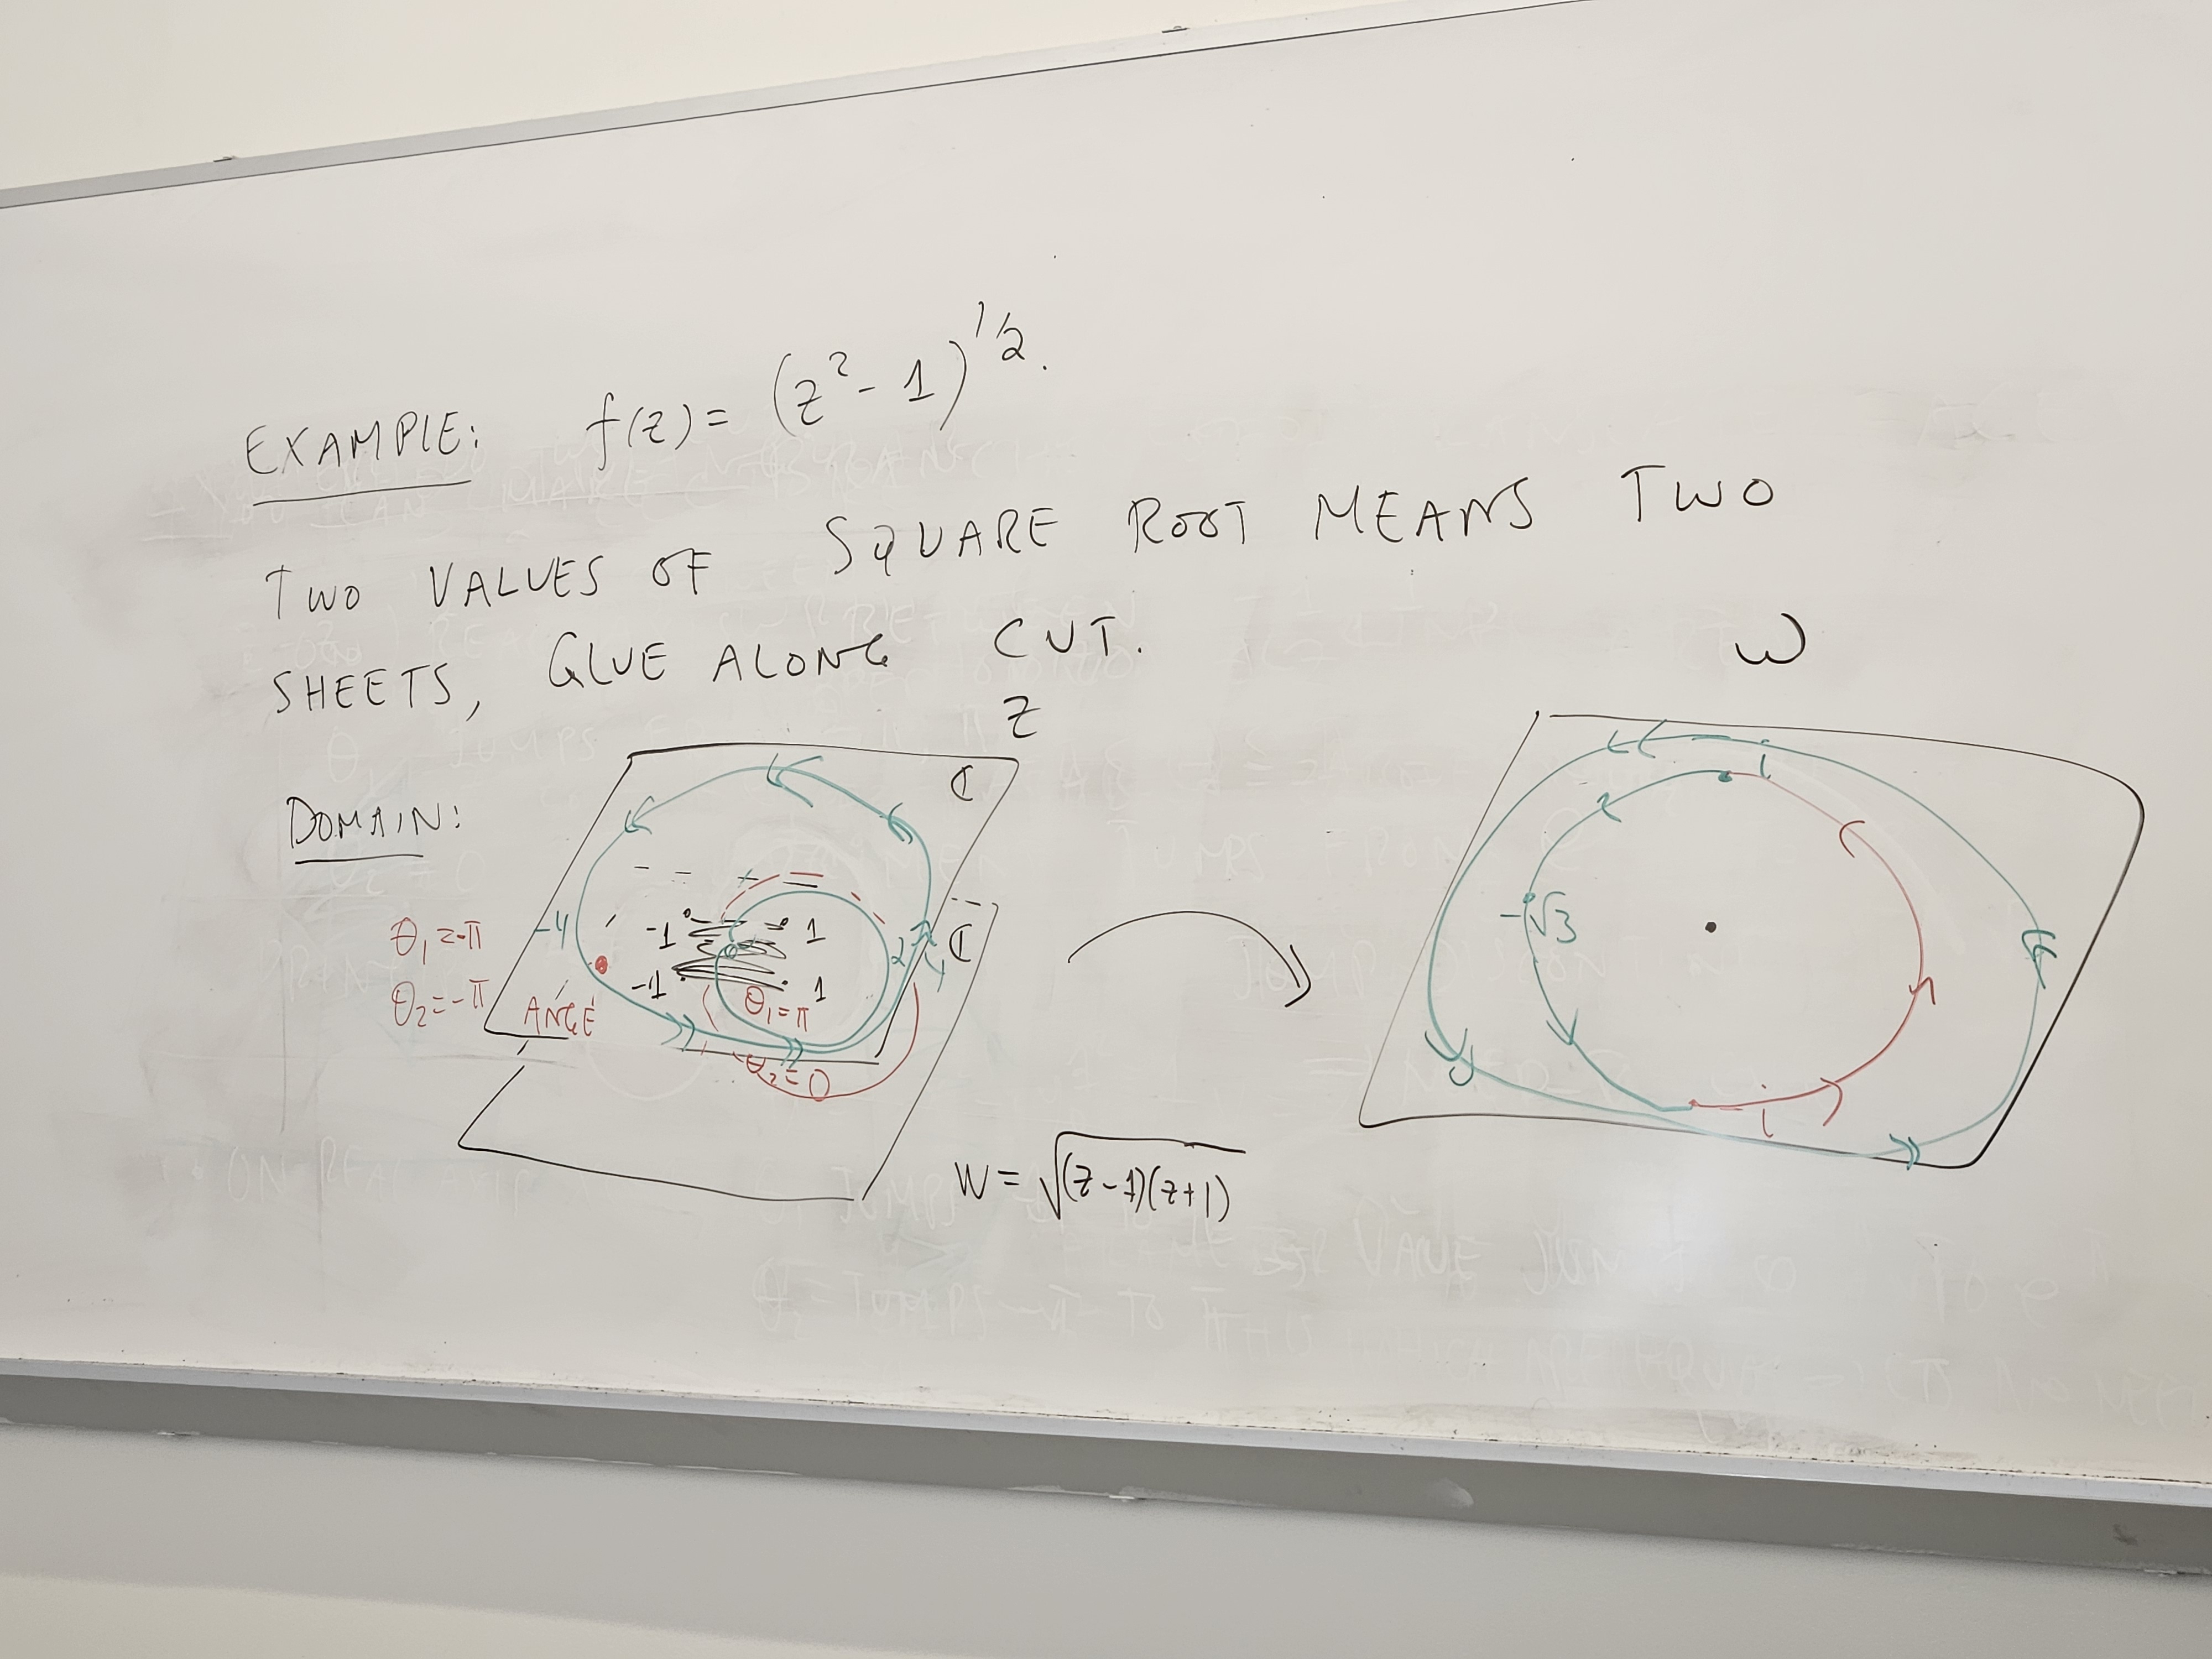 EXAMPLE: f(z) = (z² - 1)^1/2.
TWO VALUES OF SQUARE ROOT MEANS TWO
SHEETS, GLUE ALONG CUT.
Z
W
DOMAIN:
ℂ
ℂ
-4
-1 1
-1 1
2
4
θ₁ = -π
θ₂ = -π
θ₁ = π
θ₂ = 0
W = √(z-1)(z+1)
i
-√3
-i